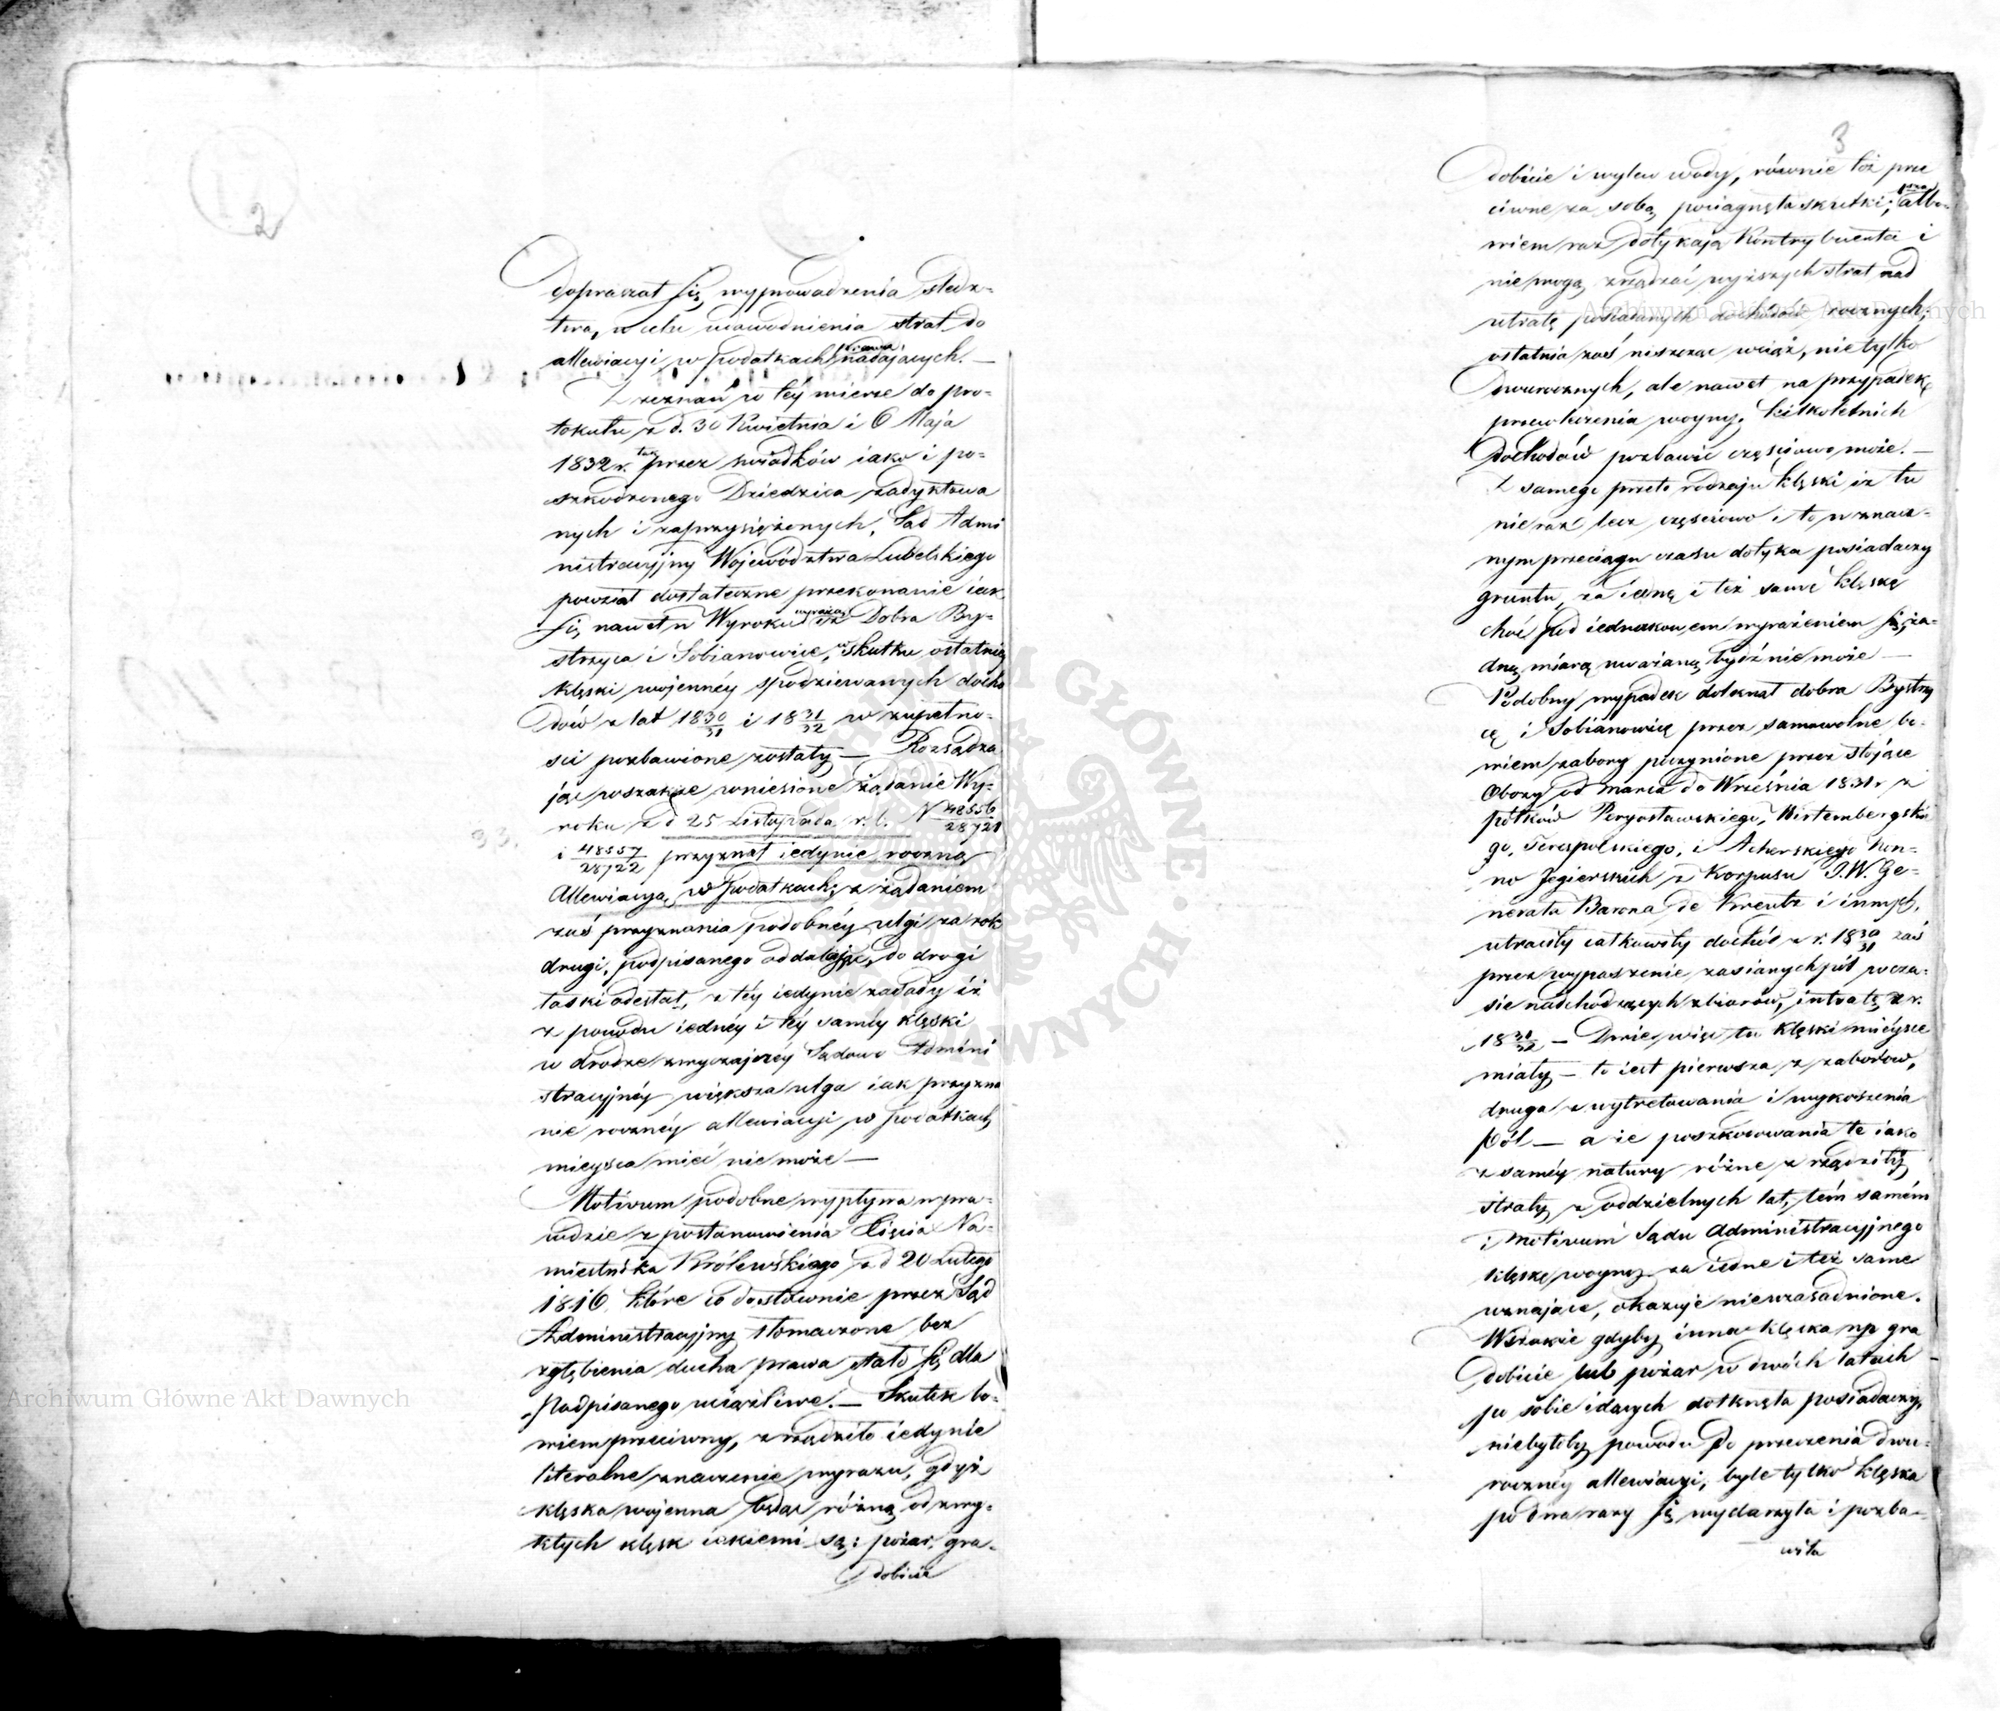 2
dopraszał się wyprowadzenia śledz-
twa, w celu udowodnienia strat do
allewiacyi w podatkach prawa nadających. —
Z zeznań w téy mierze do pro-
tokułu z d. 30 Kwietnia i 6 Maja
1832 r. tak przez świadków iako i po-
szkodzonego Dziedzica zadyktowa
nych i zaprzysiężonych, Sąd Admi
nistracyjny Województwa Lubelskiego
powziął dostateczne przekonanie iak
się nawet w Wyroku wyraża iż Dobra By-
strzyca i Sobianowice, w skutku ostatniéy
klęski wojennéy spodziewanych docho
dów z lat 18 30/31 i 18 31/32 w zupełno-
ści pozbawione zostały — Rozsądza
jąc wszakże wniesione żądanie Wy-
roku z d 25 Listopada r. b. N 48556/28721
i 48557/28722 przyznał iedynie roczną
Allewiacyą w podatkach, z żądaniem
zaś przyznania podobnéy ulgi za rok
drugi, podpisanego oddalając, do drogi
łaski odesłał, z téy iedynie zasady iż
z powodu iednéy i téy saméy klęski
w drodze zwyczajnéy Sądowo Admini
stracyjnéy większa ulga iak przyzna
nie rocznéy allewiacyi w podatkach
mieysca mieć nie może —
Motivum podobne wypływa w pra-
wdzie z postanowienia Xięcia Na-
miestnika Królewskiego z d 20 Lutego
1816. które co do słownie przez Sąd
Administracyjny tłomaczone bez
zgłębienia ducha prawa stało się dla
Podpisanego uciążliwe. — Skutek bo-
wiem przeciwny, zrządziło iedynie
literalne znaczenie wyrazu, gdyż
klęska wojenna będąc różną od zwy-
kłych klęsk iakiemi są: pożar, gra-
dobicie
3
dobicie i wylew wody, równie też prze
ciwne za sobą pociągnęła skutki; albo-
wiem raz dotykają Kontrybuenta i
nie mogą zrządzać wyższych strat nad
utratę posiadanych dochodów rocznych,
ostatnia zaś niszcząc wciąż, nie tylko
dwurocznych, ale nawet na przypadek
przewleczenia woyny, kilkoletnich
dochodów pozbawić częściowo może. —
Z samego przeto rodzaju klęski iż tu
nie raz lecz częściowo i to w znacz-
nym przeciągu czasu dotyka posiadaczy
gruntu, za iedną i téż samę klęskę
choć pod iednakowem wyrażeniem się, ża-
dną miarą uważaną bydź nie może —
Podobny wypadek dotknął dobra Bystrzy
cę i Sobianowicę przez samowolne bo-
wiem zabory poczynione przez stojące
Obozy od marca do Września 1831 r z
półków Peryosławskiego, Wirtembergskie
go, Terespolskiego, i Acherskiego kon-
no Jegierskich z Korpusu J.W. Ge-
nerała Barona de Kreutz i innych,
utraciły całkowity dochód z r. 18 30/31 zaś
przez wypaszenie zasianych pól w cza-
sie nadchodzących zbiorów, intratę z r.
18 31/32 — Dwie więc tu klęski mieysce
miały — to iest pierwsza z zaborów,
druga z wytretowania i wykoszenia
pól — a że poszkodowania te iako
z saméy natury różne zrządziły
straty z oddzielnych lat, tém samém
i Motivum Sądu Administracyjnego
klęskę woyny za iedne i też same
uznające, okazuje nieuzasadnione.
Wszakże gdyby inna klęska np gra
dobicie lub pożar w dwóch latach
po sobie idących dotknęła posiadaczy,
niebyłoby powodu do przeczenia dwu-
rocznéy allewiacyi, byle tylko klęska
po dwa razy się wydarzyła i pozba-
wiła